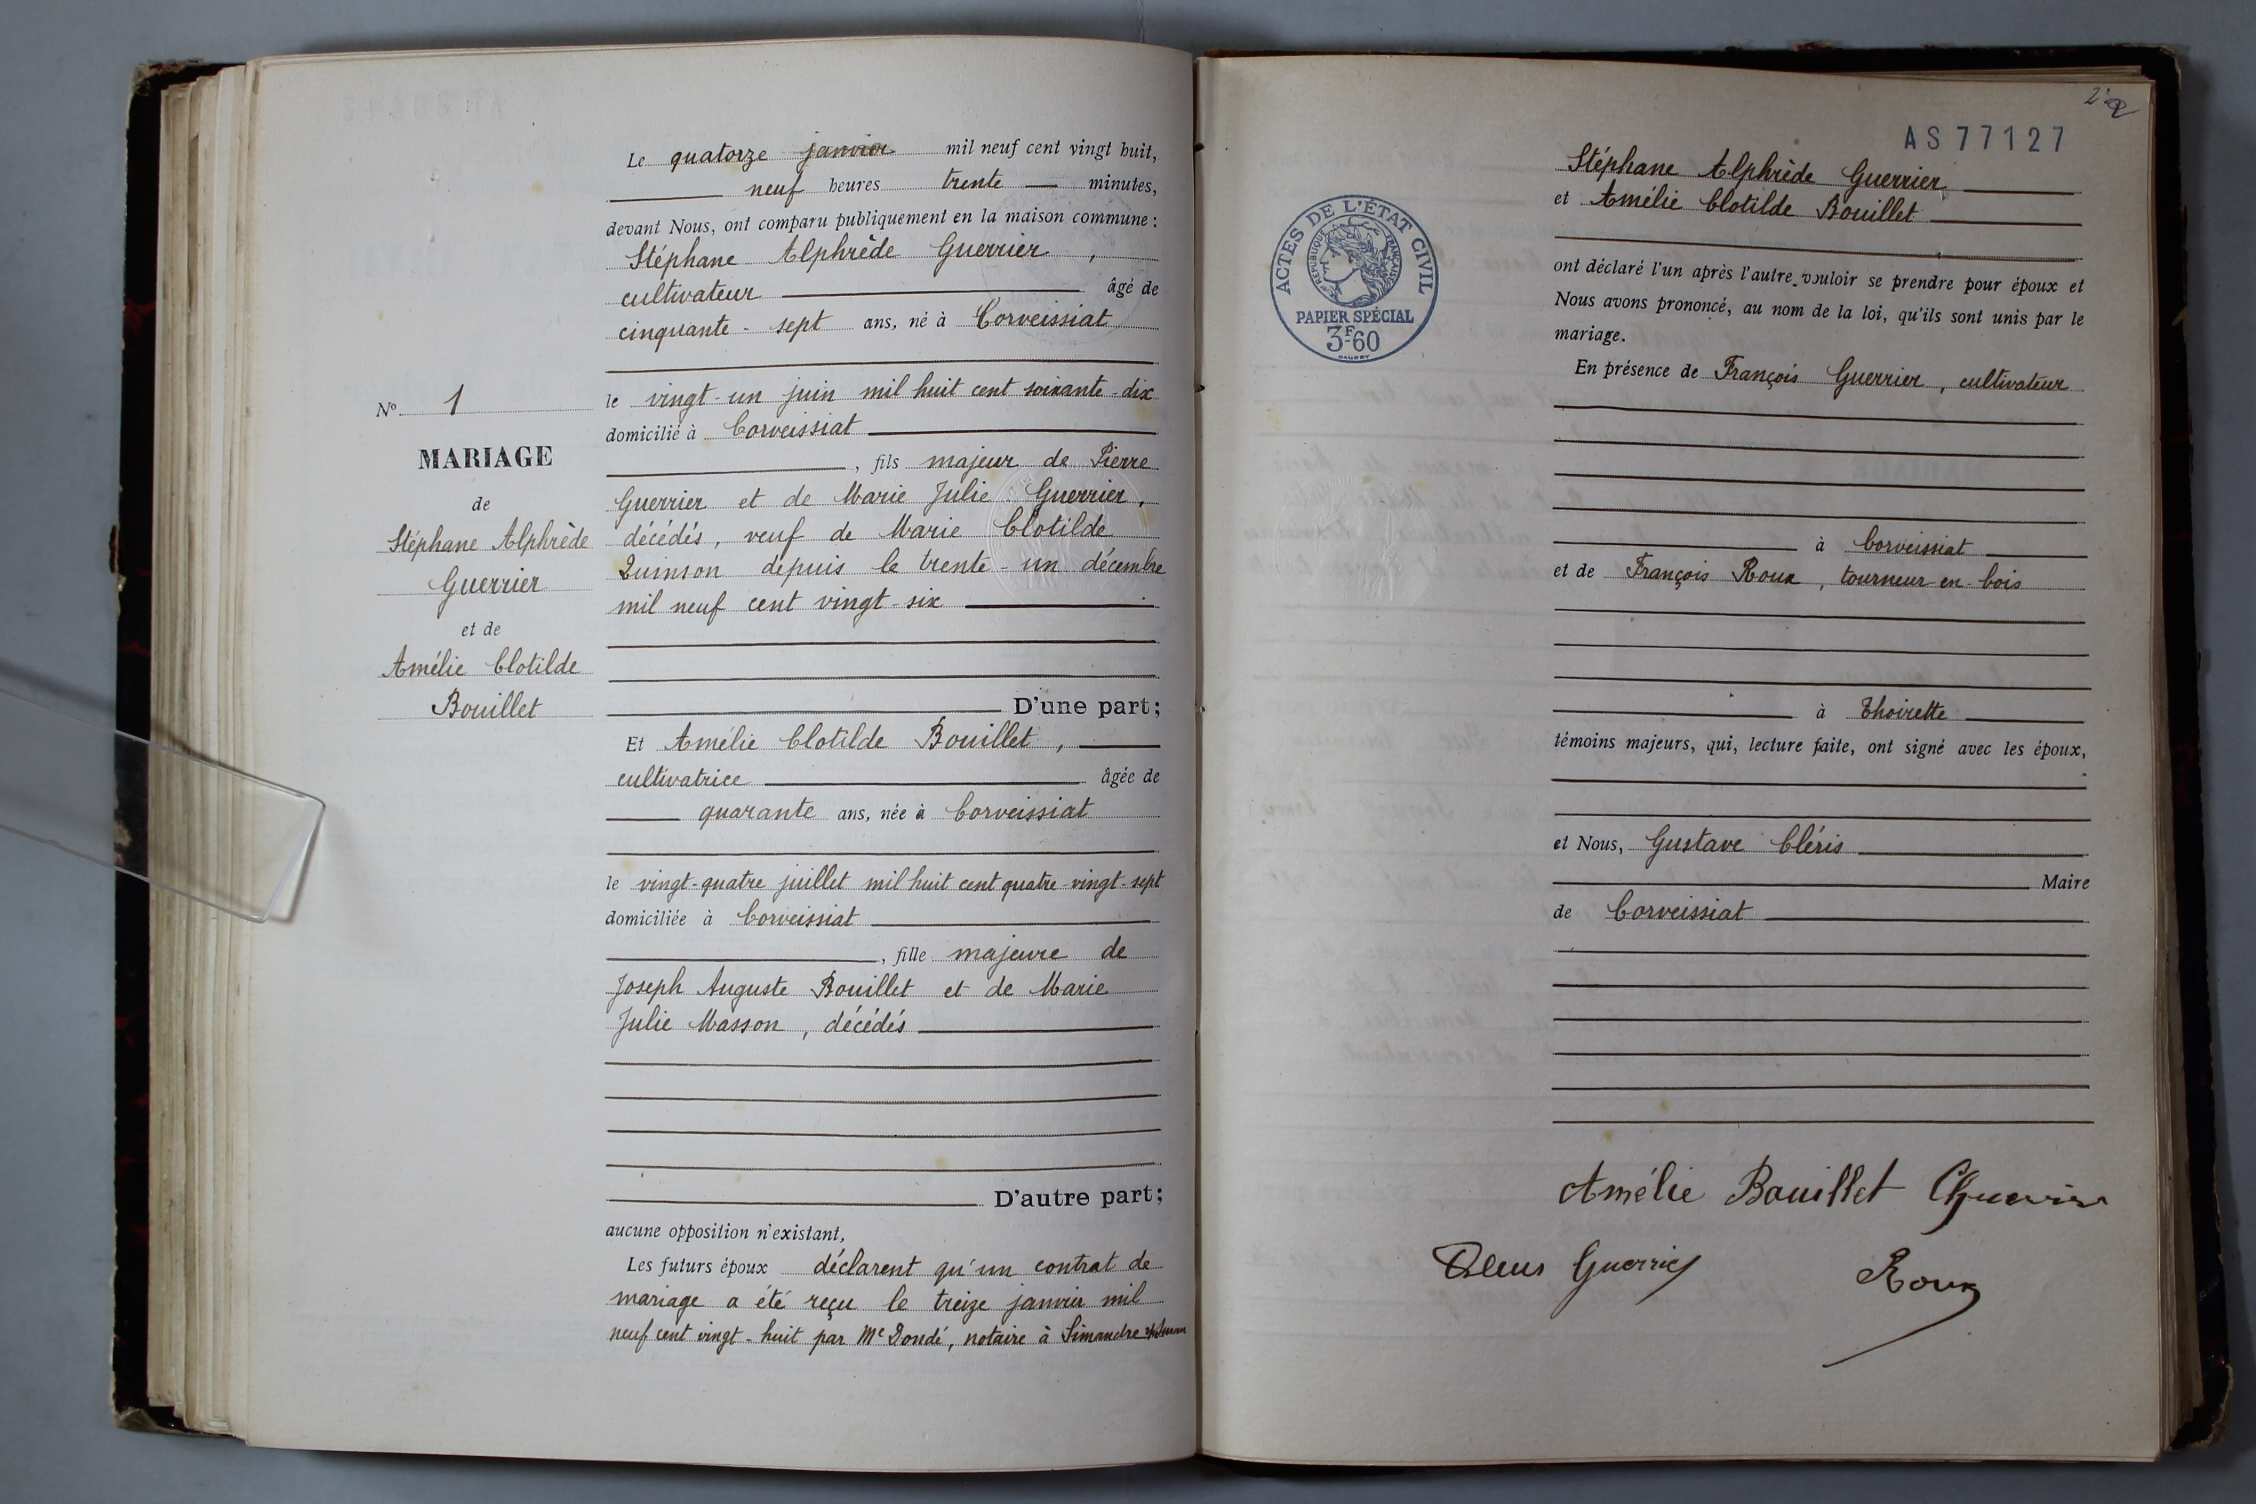 Le quatorze janvier mil neuf cent vingt huit,
neuf heures trente minutes,
devant Nous, ont comparu publiquement en la maison commune :
Stéphane Alphrède Guerrier,
cultivateur âgé de
cinquante-sept ans, né à Corveissiat
le vingt-un juin mil huit cent soixante-dix
domicilié à Corveissiat
, fils majeur de Pierre
Guerrier et de Marie Julie Guerrier,
décédés, veuf de Marie Clotilde
Quinson depuis le trente-un décembre
mil neuf cent vingt-six
D'une part;
Et Amélie Clotilde Bouillet,
cultivatrice âgée de
quarante ans, née à Corveissiat
le vingt-quatre juillet mil huit cent quatre-vingt-sept
domiciliée à Corveissiat
, fille majeure de
Joseph Auguste Bouillet et de Marie
Julie Masson, décédés
D'autre part;
aucune opposition n'existant,
Les futurs époux déclarent qu'un contrat de
mariage a été reçu le treize janvier mil
neuf cent vingt-huit par Me Doudé, notaire à Simandre
No 1
MARIAGE
de
Stéphane Alphrède
Guerrier
et de
Amélie Clotilde
Bouillet
2
AS77127
ACTES DE L'ÉTAT CIVIL
RÉPUBLIQUE FRANÇAISE
PAPIER SPÉCIAL
3F60
Stéphane Alphrède Guerrier
et Amélie Clotilde Bouillet
ont déclaré l'un après l'autre vouloir se prendre pour époux et
Nous avons prononcé, au nom de la loi, qu'ils sont unis par le
mariage.
En présence de François Guerrier, cultivateur
à Corveissiat
et de François Roux, tourneur-en-bois
à Thoirette
témoins majeurs, qui, lecture faite, ont signé avec les époux,
et Nous, Gustave Cléris
Maire
de Corveissiat
Amélie Bouillet
Guerrier
Roux